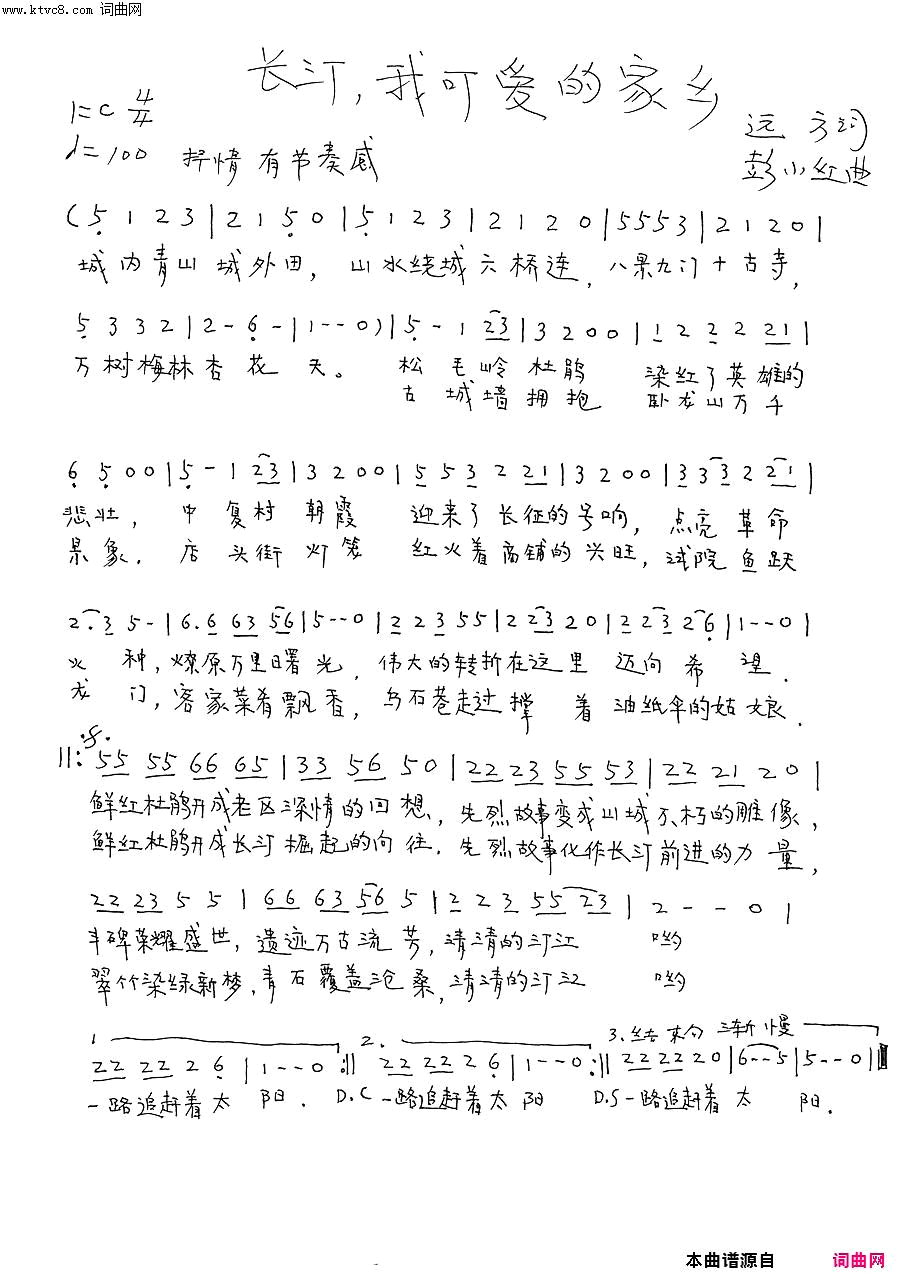 www.ktvc8.com 词曲网
长汀,我可爱的家乡
1=C 4/4
♩=100 抒情 有节奏感
远方词
彭小红曲
(5 1 2 3 | 2 1 5 0 | 5 1 2 3 | 2 1 2 0 | 5 5 5 3 | 2 1 2 0 |
城内青山城外田, 山水绕城六桥连, 八景九门十古寺,
5 3 3 2 | 2 - 6 - | 1 - - 0) | 5 - 1 23 | 3 2 0 0 | 1 2 2 2 21 |
万树梅林杏花天。 松毛岭杜鹃 染红了英雄的
古城墙拥抱 卧龙山万千
6 5 0 0 | 5 - 1 23 | 3 2 0 0 | 5 5 3 2 21 | 3 2 0 0 | 3 3 3 2 21 |
悲壮, 中复村朝霞 迎来了长征的号响, 点亮革命
景象. 店头街灯笼 红火着商铺的兴旺, 试院鱼跃
2. 3 5 - | 6. 6 63 56 | 5 - - 0 | 2 2 3 55 | 2 23 2 0 | 22 23 26 | 1 - - 0 |
火种, 燎原万里曙光, 伟大的转折在这里迈向希望.
龙门, 客家菜肴飘香, 乌石巷走过撑着油纸伞的姑娘.
||: 55 55 66 65 | 33 56 50 | 22 23 55 53 | 22 21 2 0 |
鲜红杜鹃开成老区深情的回想, 先烈故事变成山城不朽的雕像,
鲜红杜鹃开成长汀崛起的向往. 先烈故事化作长汀前进的力量,
22 23 5 5 | 66 63 56 5 | 2 2 3 55 23 | 2 - - 0 |
丰碑荣耀盛世, 遗迹万古流芳, 清清的汀江 哟
翠竹染绿新梦, 青石覆盖沧桑, 清清的汀江 哟
1. 2. 3. 结束句 渐慢
22 22 2 6 | 1 - - 0 :|| 22 22 2 6 | 1 - - 0 :|| 22 22 2 0 | 6 - - 5 | 5 - - 0 ||
一路追赶着太阳. D.C 一路追赶着太阳 D.S 一路追赶着太阳.
本曲谱源自 词曲网